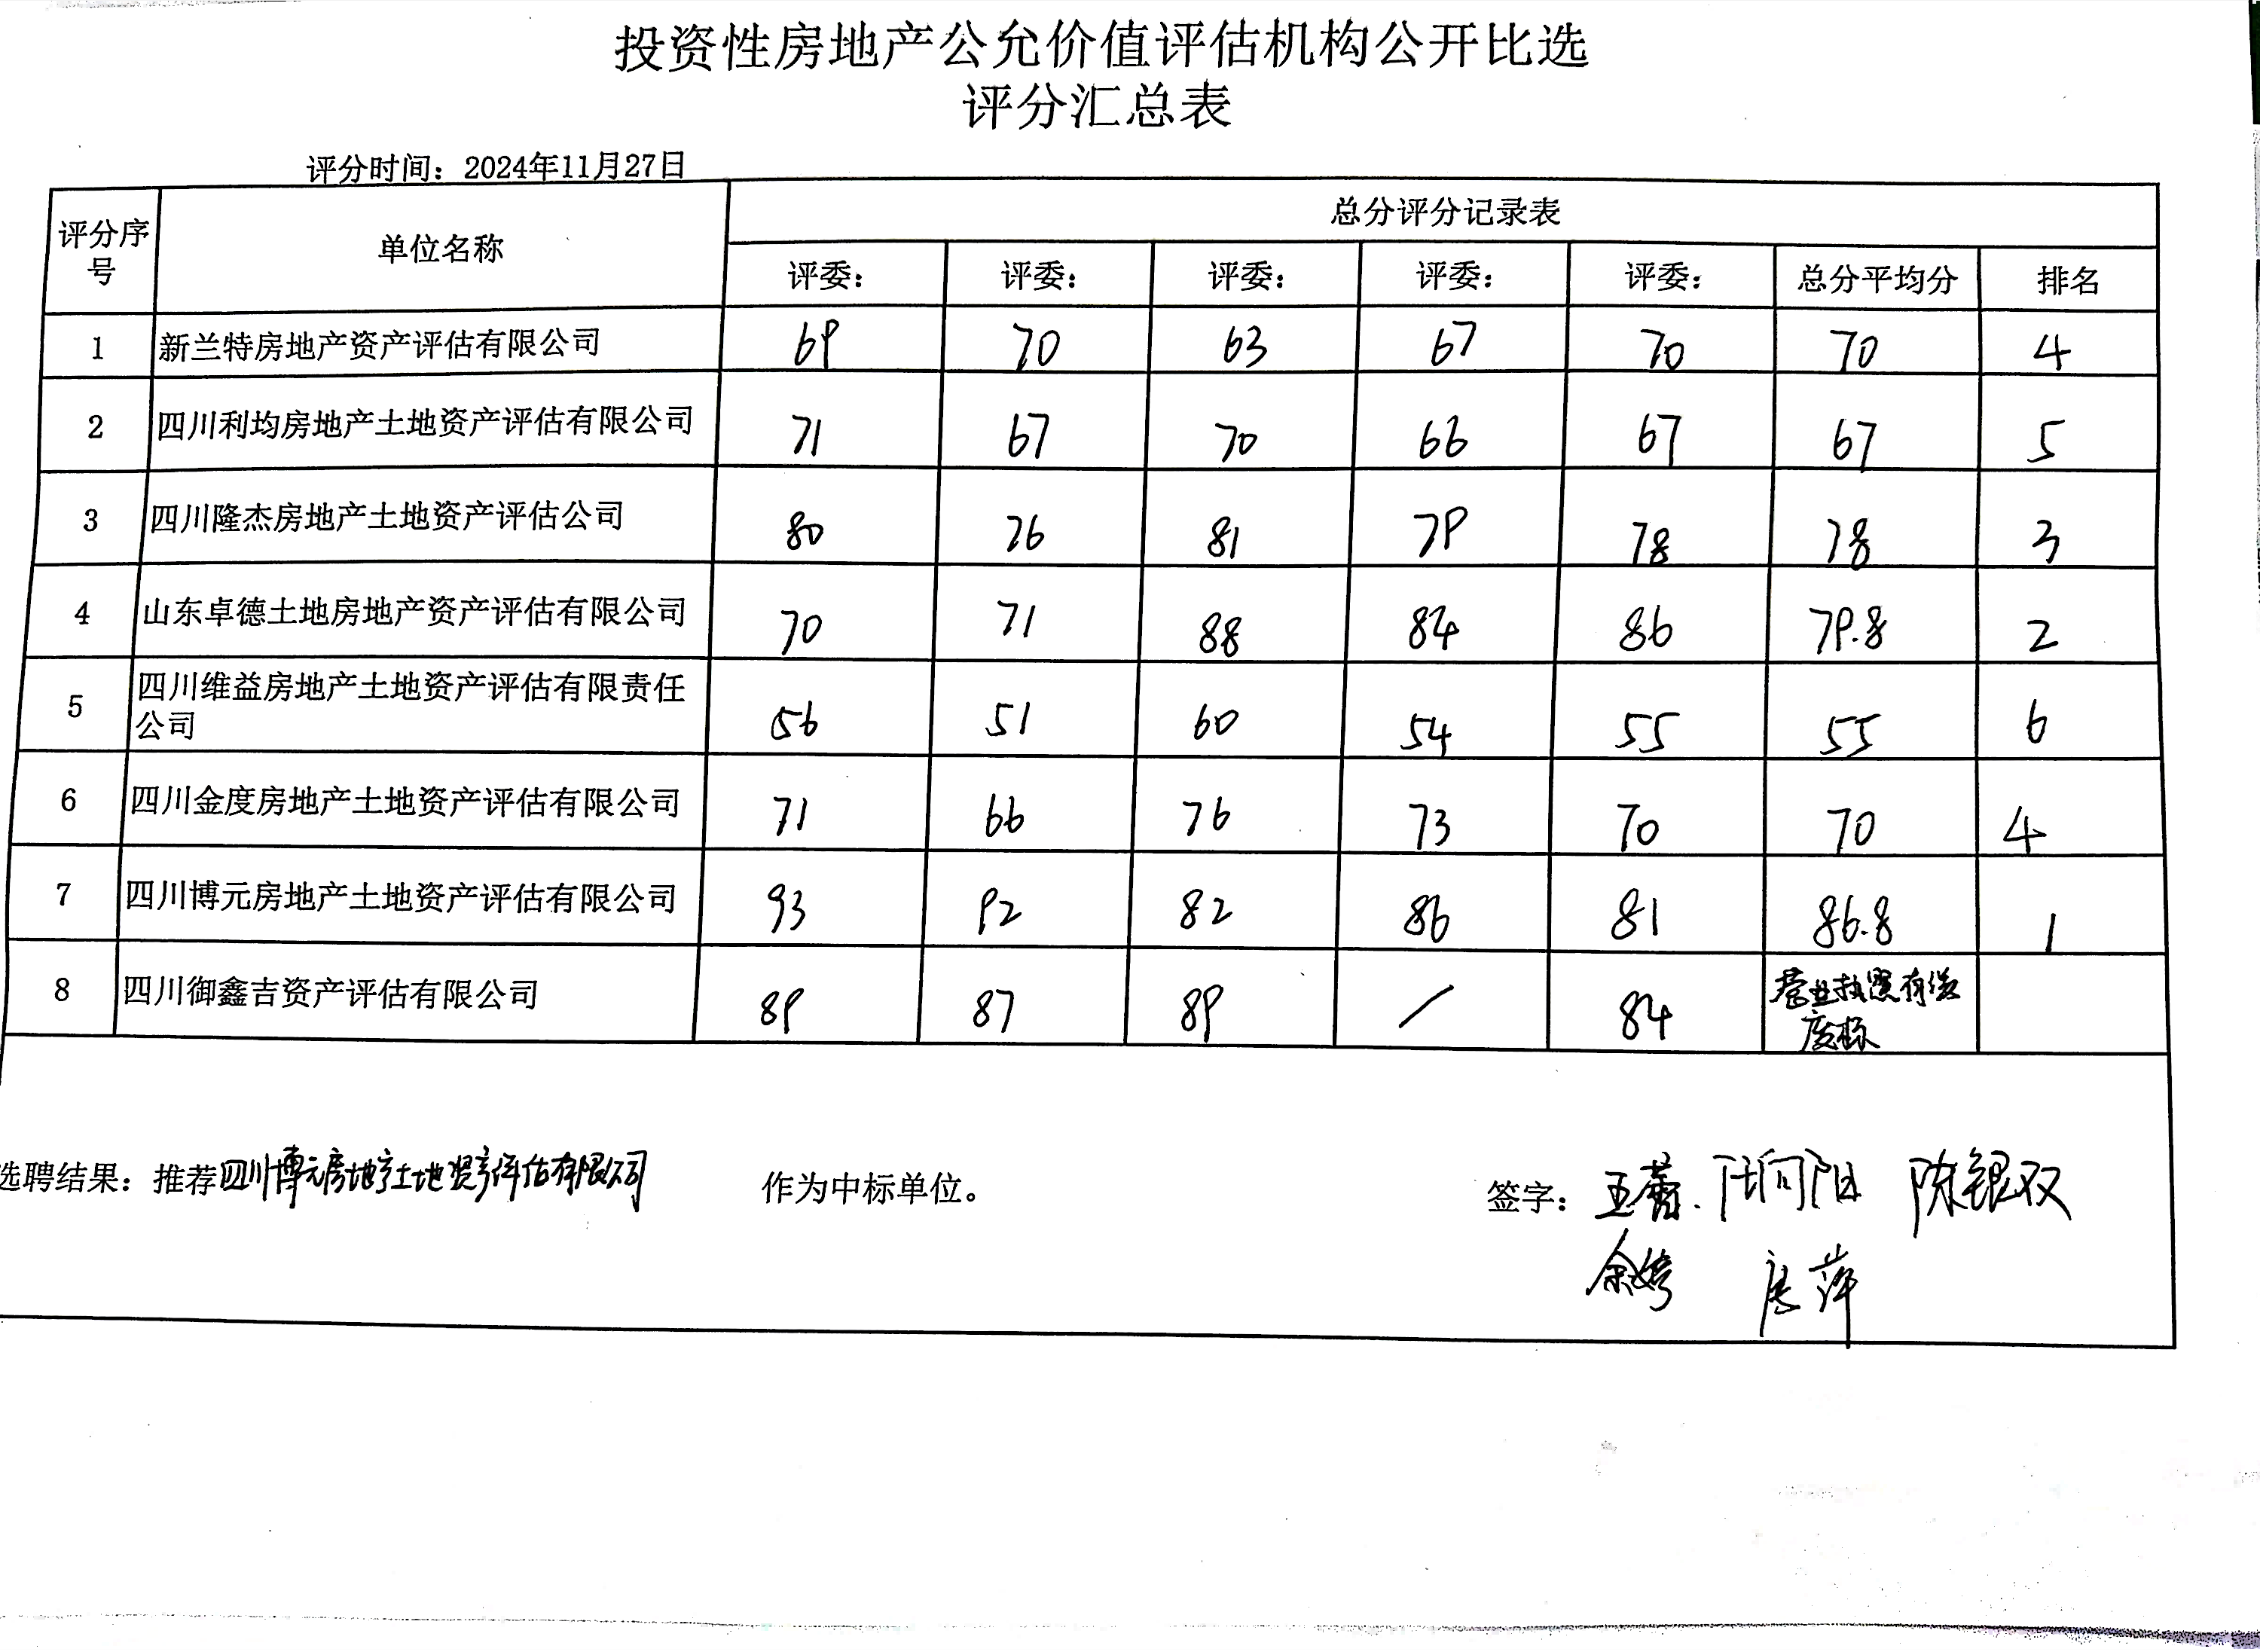 投资性房地产公允价值评估机构公开比选
评分汇总表
评分时间：2024年11月27日
评分序号 单位名称 总分评分记录表
评委： 评委： 评委： 评委： 评委： 总分平均分 排名
1 新兰特房地产资产评估有限公司 69 70 63 67 70 70 4
2 四川利均房地产土地资产评估有限公司 71 67 70 66 67 67 5
3 四川隆杰房地产土地资产评估公司 80 76 81 79 78 78 3
4 山东卓德土地房地产资产评估有限公司 70 71 88 84 86 79.8 2
5 四川维益房地产土地资产评估有限责任公司 56 51 60 54 55 55 6
6 四川金度房地产土地资产评估有限公司 71 66 76 73 70 70 4
7 四川博元房地产土地资产评估有限公司 93 92 82 86 81 86.8 1
8 四川御鑫吉资产评估有限公司 89 87 89 / 84 营业执照有误
废标
选聘结果：推荐四川博元房地产土地资产评估有限公司 作为中标单位。 签字：王蕾. 向阳 陈银双
余婷 萍